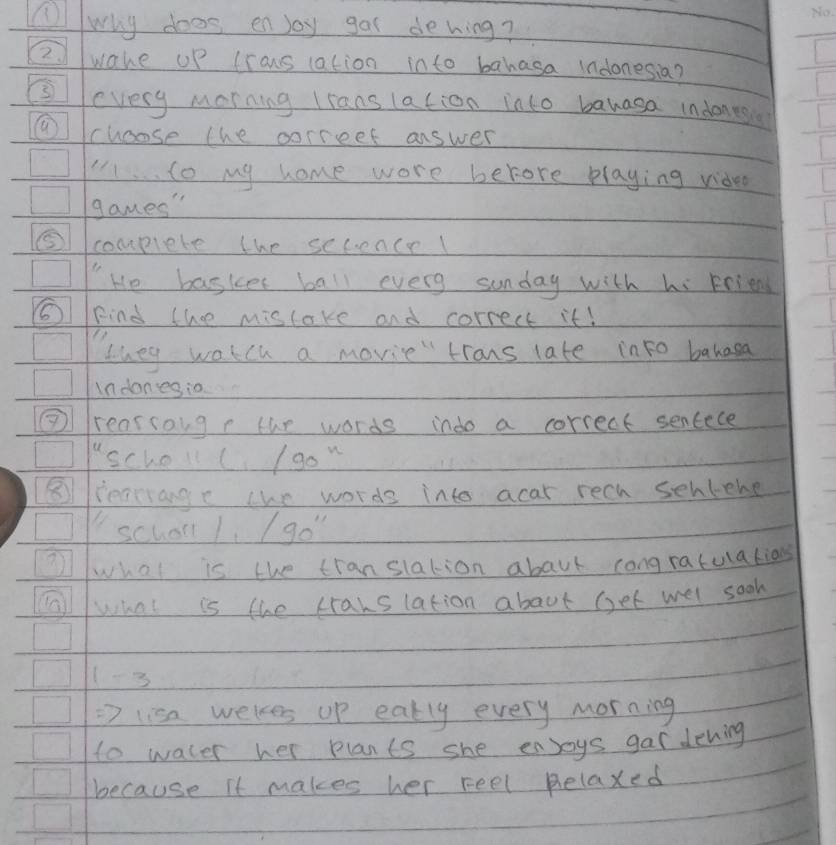 No
① Why does enjoy gar dening?
2. wake up trans lation into bahasa indonesia?
③ every morning translation into bahasa indonesia
④ choose the correct answer
"I ... to my home wore before playing video
games"
⑤ complete the sectence!
"He basket ball every sunday with hi Friend
⑥ Find the mistake and correct it!
"they watch a movie" trans late into bahasa
indonesia
⑦ rearrange the words indo a correct sentece
"scholl (. /go"
⑧ rearrange the words into acar rech
"scholl /. /go"
⑨ what is the translation abaut congratulations
⑩ what is the translation abaut Get wel sooh
1-3
=> lisa wekes up eatly every morning
to water her plants she enjoys gardening
because it makes her Feel Relaxed